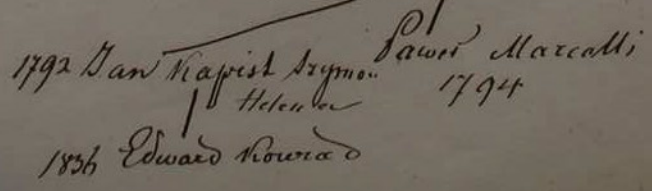 1792 Jan Kapist Szymon Paweł Marcelli
Helena 1794
1836 Edward Konrad